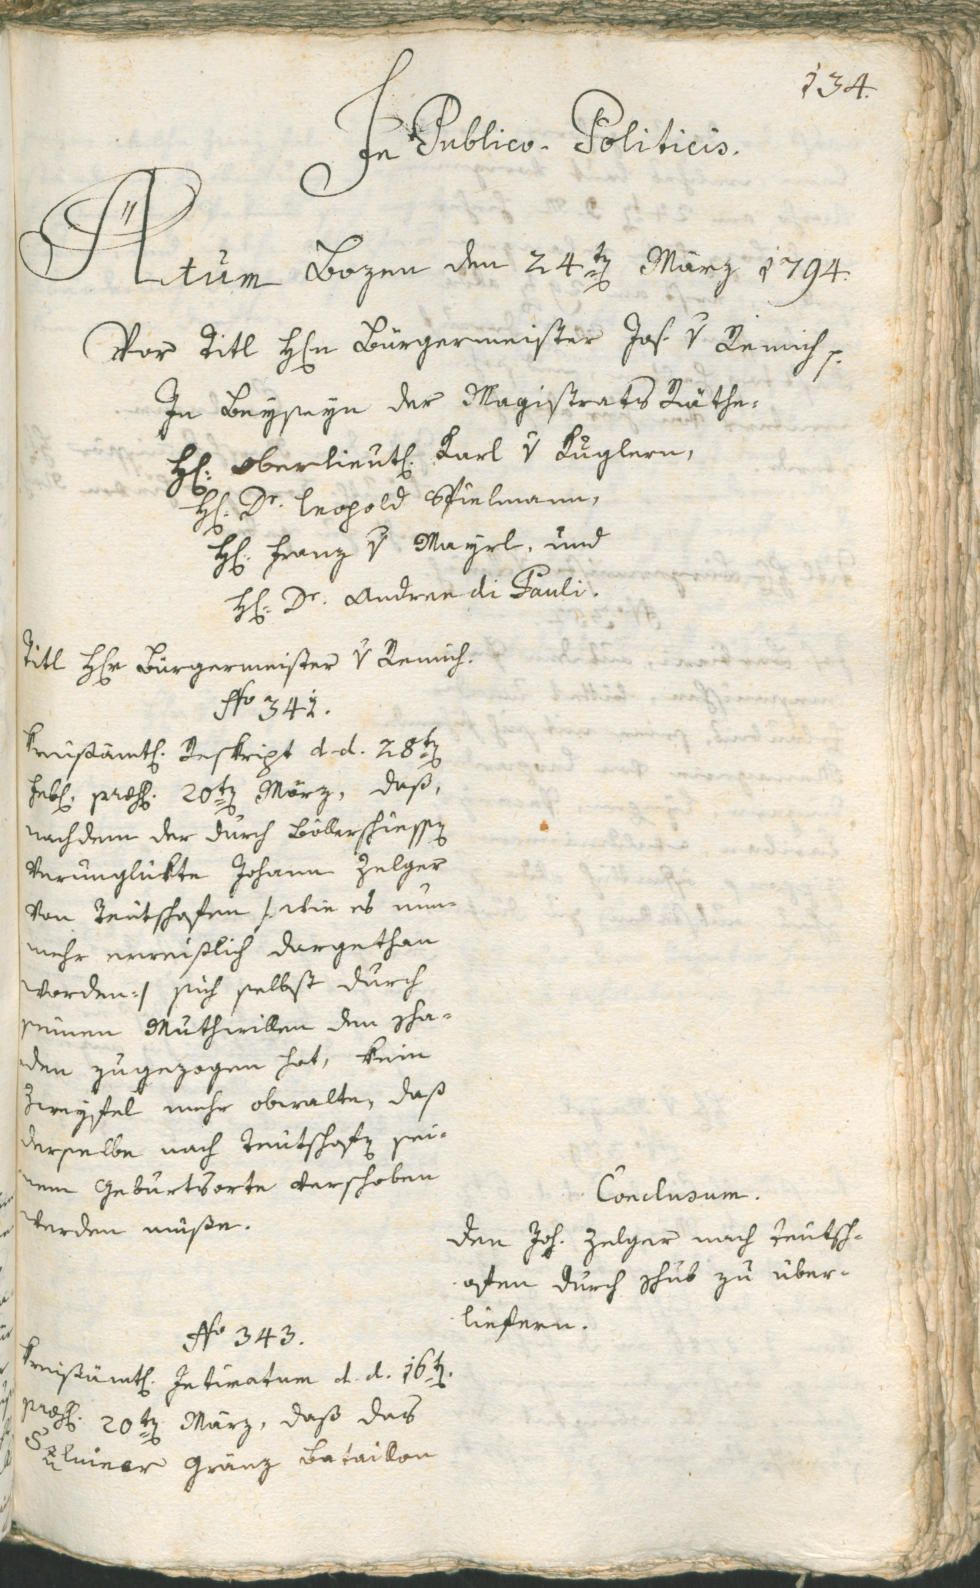 134.
In Publico-Politicis.
Actum Bozen den 24ten März 1794.
Vor Titl Hhn Bürgermeister Jos. v Remich p.
In Beyseyn der Magistrats Räthe:
Hh: Oberlieut: Karl v Kuglern,
Hh: Dr. Leopold Spielmann,
Hh: Franz v Mayrl, und
Hh: Dr. Andree di Pauli.
Titl Hhr Bürgermeister v Remich.
No 342.
Kreisämtl. Reskript d. d. 28ten
Feb: præs: 20ten März, daß,
nachdem der durch Böllerschiessen
verunglückte Johann Zelger
von Teutschofen /: wie es nun-
mehr erweißlich dargethan
worden :/ sich selbst durch
seinen Muthwillen den Scha-
den zugezogen hat, kein
Zweyfel mehr obwalte, daß
derselbe nach Teutschofen sei-
nem Geburtsorte verschoben
werden müße.
Conclusum.
Den Joh. Zelger nach Teutsch-
ofen durch Schub zu über-
liefern.
No 343.
Kreisämtl. Intimatum d. d. 16ten
præs: 20ten März, daß das
Szluiner Gränz Bataillon